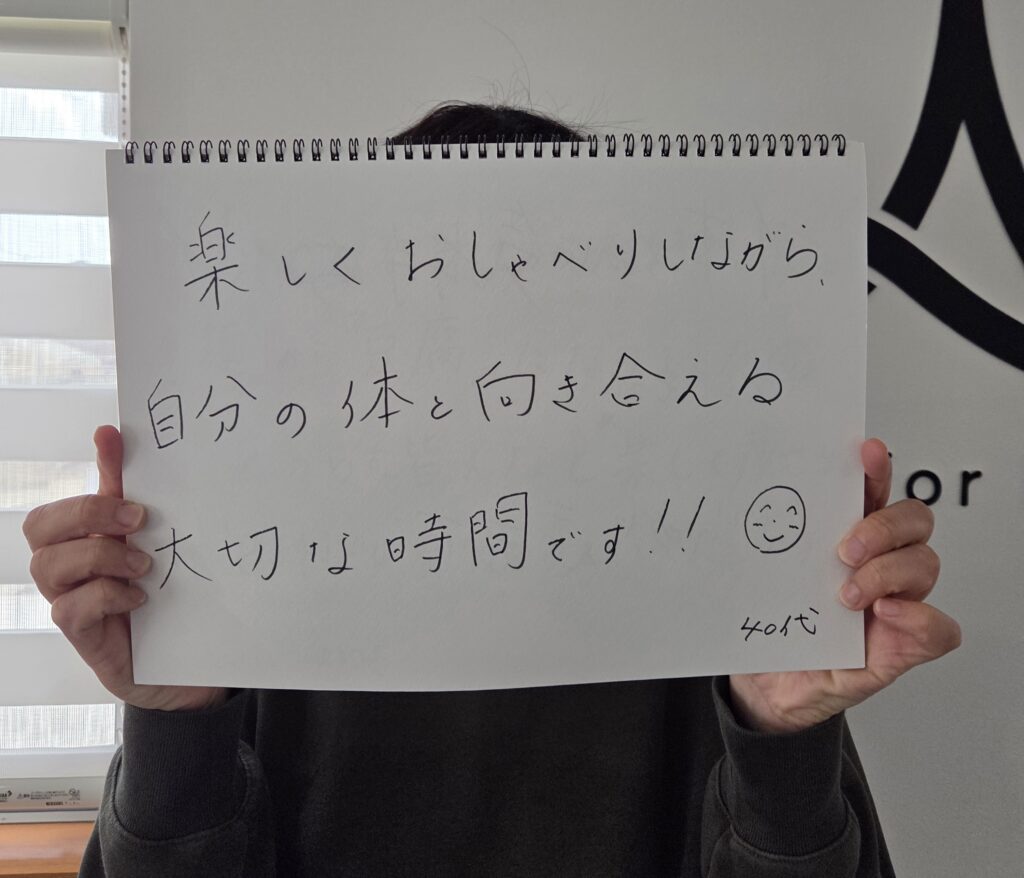 楽しくおしゃべりしながら、
自分の体と向き合える
大切な時間です!!
40代
ior